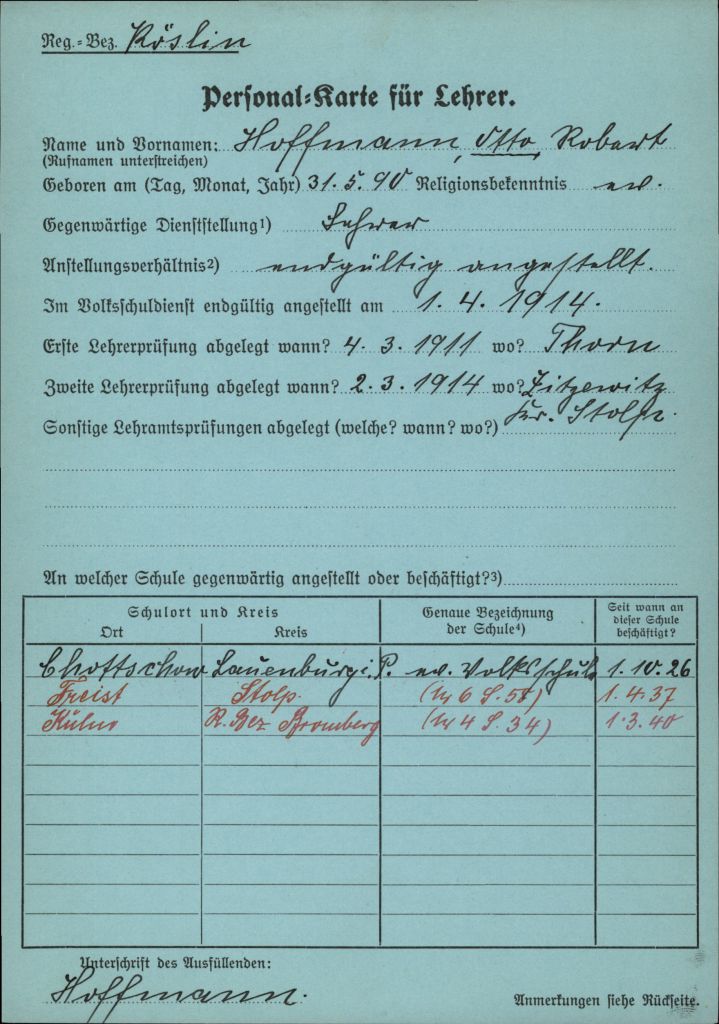 Reg.-Bez. Köslin
Personal-Karte für Lehrer.
Name und Vornamen: Hoffmann, Otto, Robert
(Rufnamen unterstreichen)
Geboren am (Tag, Monat, Jahr) 31.5.90 Religionsbekenntnis ev.
Gegenwärtige Dienststellung1) Lehrer
Anstellungsverhältnis2) endgültig angestellt.
Im Volksschuldienst endgültig angestellt am 1.4.1914.
Erste Lehrerprüfung abgelegt wann? 4.3.1911 wo? Thorn
Zweite Lehrerprüfung abgelegt wann? 2.3.1914 wo? Zitzewitz
Kr. Stolp.
Sonstige Lehramtsprüfungen abgelegt (welche? wann? wo?)
An welcher Schule gegenwärtig angestellt oder beschäftigt?3)
Schulort und Kreis
Ort Kreis
Genaue Bezeichnung
der Schule4)
Seit wann an
dieser Schule
beschäftigt?
Chottschow Lauenburg i. P. ev. Volksschule 1.10.26
Freist Stolp. 6 S. 1.4.37
Kulm R. Bez Bromberg 4 S. 34) 1.3.40
Unterschrift des Ausfüllenden:
Hoffmann.
Anmerkungen siehe Rückseite.